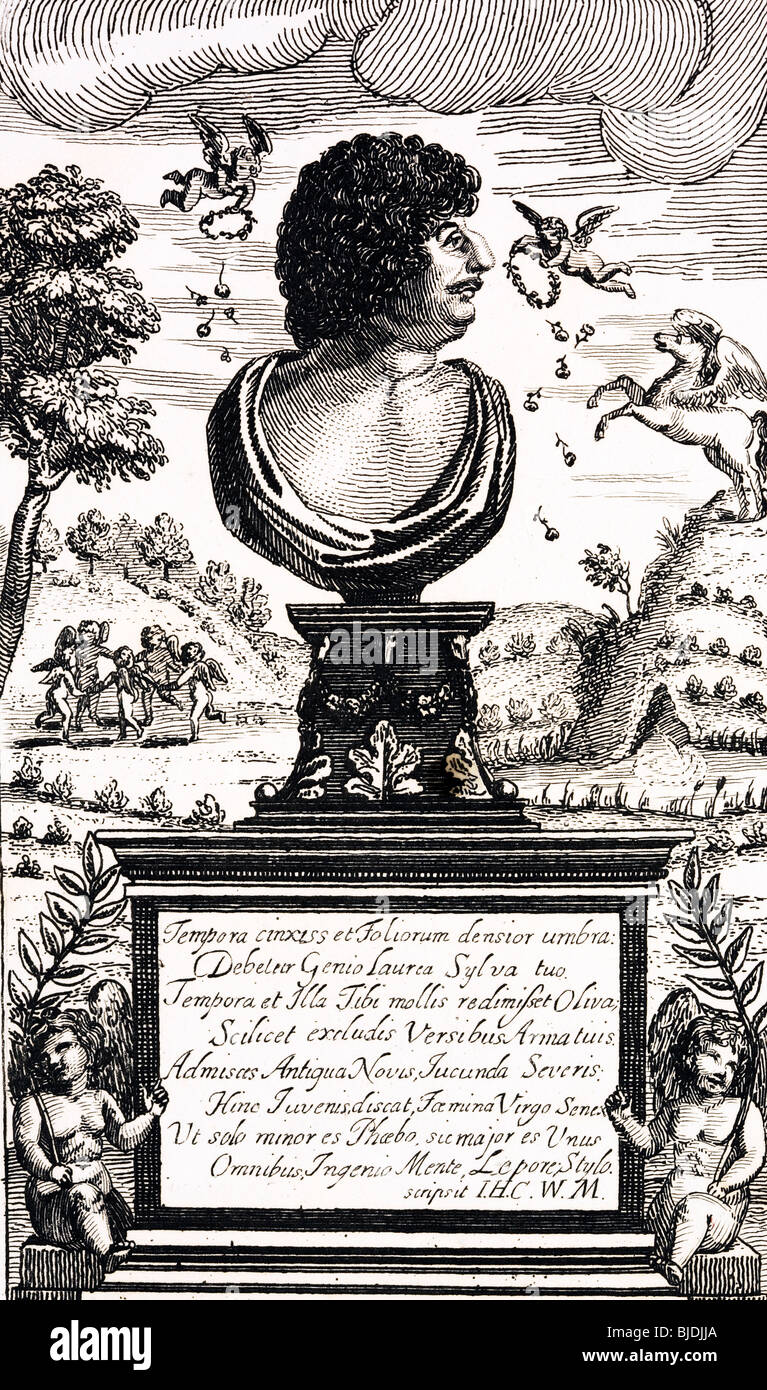 Tempora cinxiss et Foliorum densior umbra:
Debetur Genio Laurea Sylva tuo.
Tempora et Illa Tibi mollis redimisset Oliva;
Scilicet excludis Versibus Arma tuis.
Admisces Antiqua Novis, Jucunda Severis:
Hinc Juvenis, discat, Fœmina Virgo Senex
Ut solo minor es Phœbo, sic major es Unus
Omnibus, Ingenio Mente, Lepore, Stylo.
scripsit I.H.C. W.M.
alamy
alamy
Image ID: BJDJJA
www.alamy.com